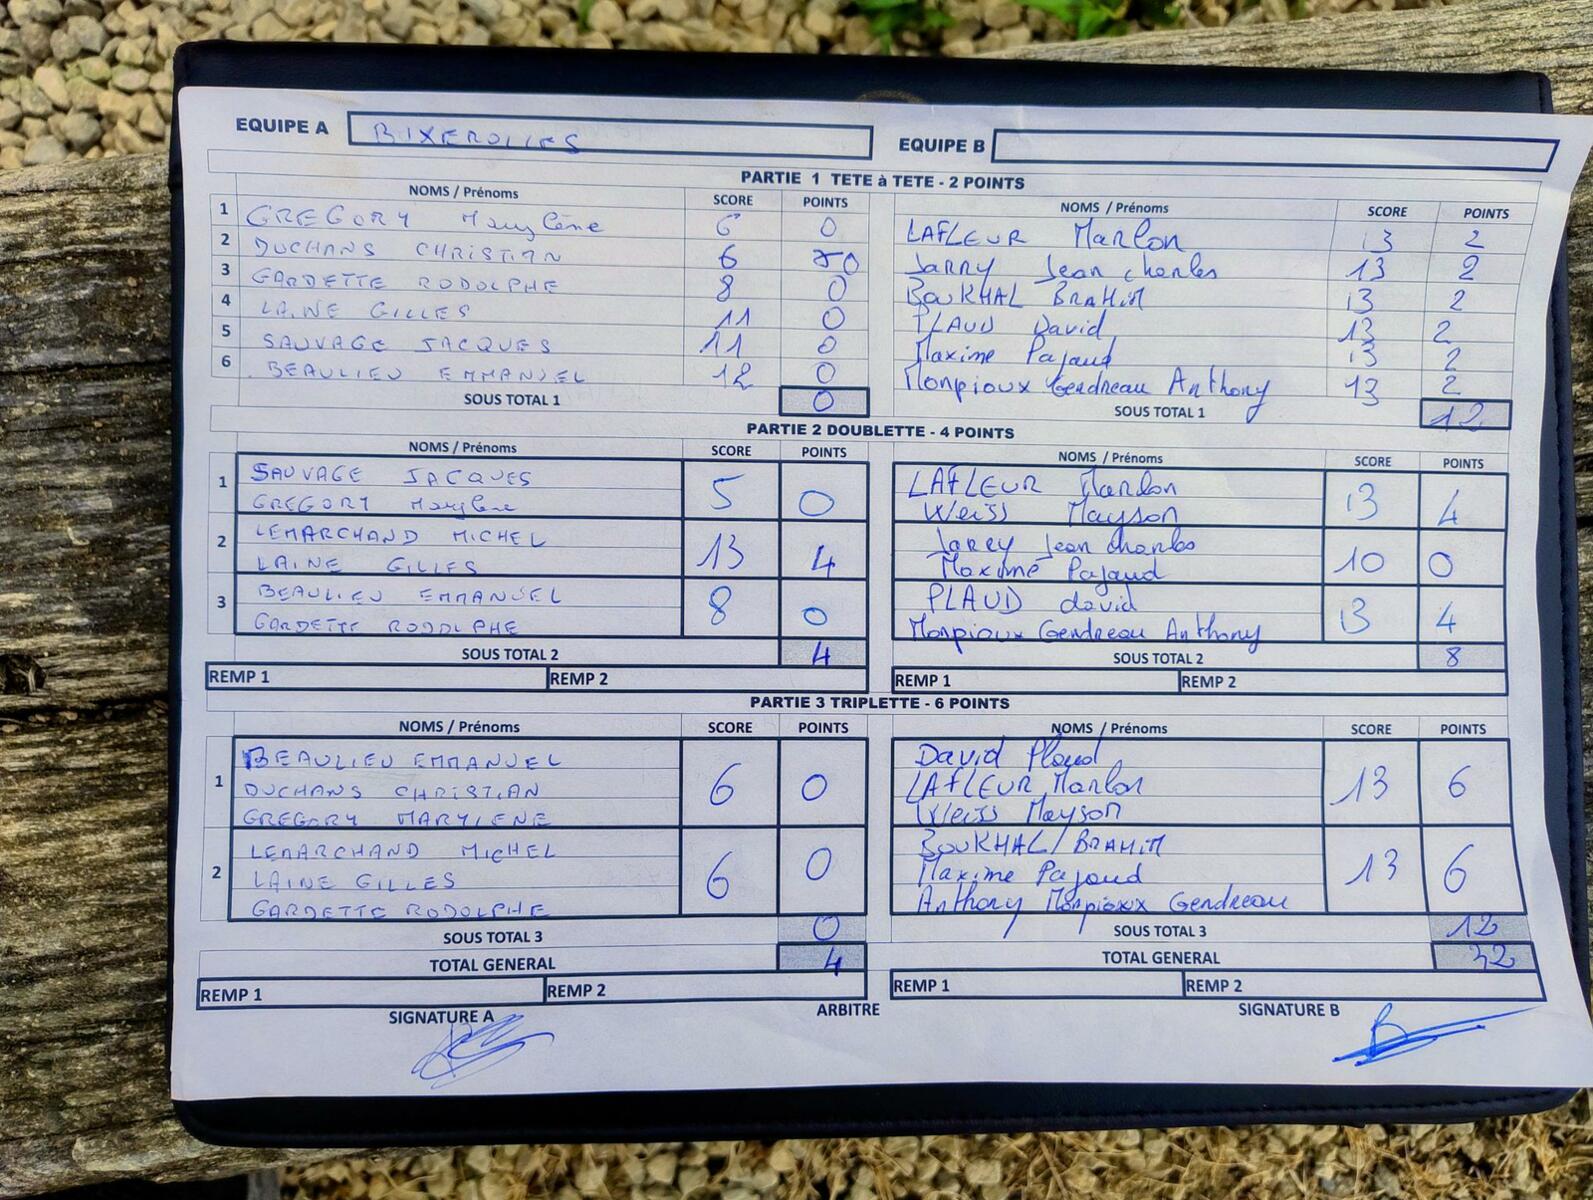 EQUIPE A BIXEROLLES EQUIPE B
PARTIE 1 TETE à TETE - 2 POINTS
NOMS / Prénoms SCORE POINTS NOMS / Prénoms SCORE POINTS
1 GREGORY Marylène 6 0 LAFLEUR Marlon 13 2
2 DUCHANS CHRISTIAN 6 0 JARRY Jean charles 13 2
3 GARDETTE RODOLPHE 8 0 BOUKHAL BRAHIM 13 2
4 LAINE GILLES 11 0 PLAUD David 13 2
5 SAUVAGE JACQUES 11 0 Maxime Pajaud 13 2
6 BEAULIEU EMMANUEL 12 0 Monpioux Gendreau Anthony 13 2
SOUS TOTAL 1 0 SOUS TOTAL 1 12
PARTIE 2 DOUBLETTE - 4 POINTS
NOMS / Prénoms SCORE POINTS NOMS / Prénoms SCORE POINTS
1 SAUVAGE JACQUES 5 0 LAFLEUR Marlon 13 4
GREGORY Marylène Weiss Mayson
2 LEMARCHAND MICHEL 13 4 Jarry Jean charles 10 0
LAINE GILLES Maxime Pajaud
3 BEAULIEU EMMANUEL 8 0 PLAUD david 13 4
GARDETTE RODOLPHE Monpioux Gendreau Anthony
SOUS TOTAL 2 4 SOUS TOTAL 2 8
REMP 1 REMP 2 REMP 1 REMP 2
PARTIE 3 TRIPLETTE - 6 POINTS
NOMS / Prénoms SCORE POINTS NOMS / Prénoms SCORE POINTS
1 BEAULIEU EMMANUEL 6 0 David Plaud 13 6
DUCHANS CHRISTIAN LAFLEUR Marlon
GREGORY MARYLENE Weiss Mayson
2 LEMARCHAND MICHEL 6 0 BOUKHAL/BRAHIM 13 6
LAINE GILLES Maxime Pajaud
GARDETTE RODOLPHE Anthony Monpioux Gendreau
SOUS TOTAL 3 0 SOUS TOTAL 3 12
TOTAL GENERAL 4 TOTAL GENERAL 32
REMP 1 REMP 2 REMP 1 REMP 2
SIGNATURE A ARBITRE SIGNATURE B